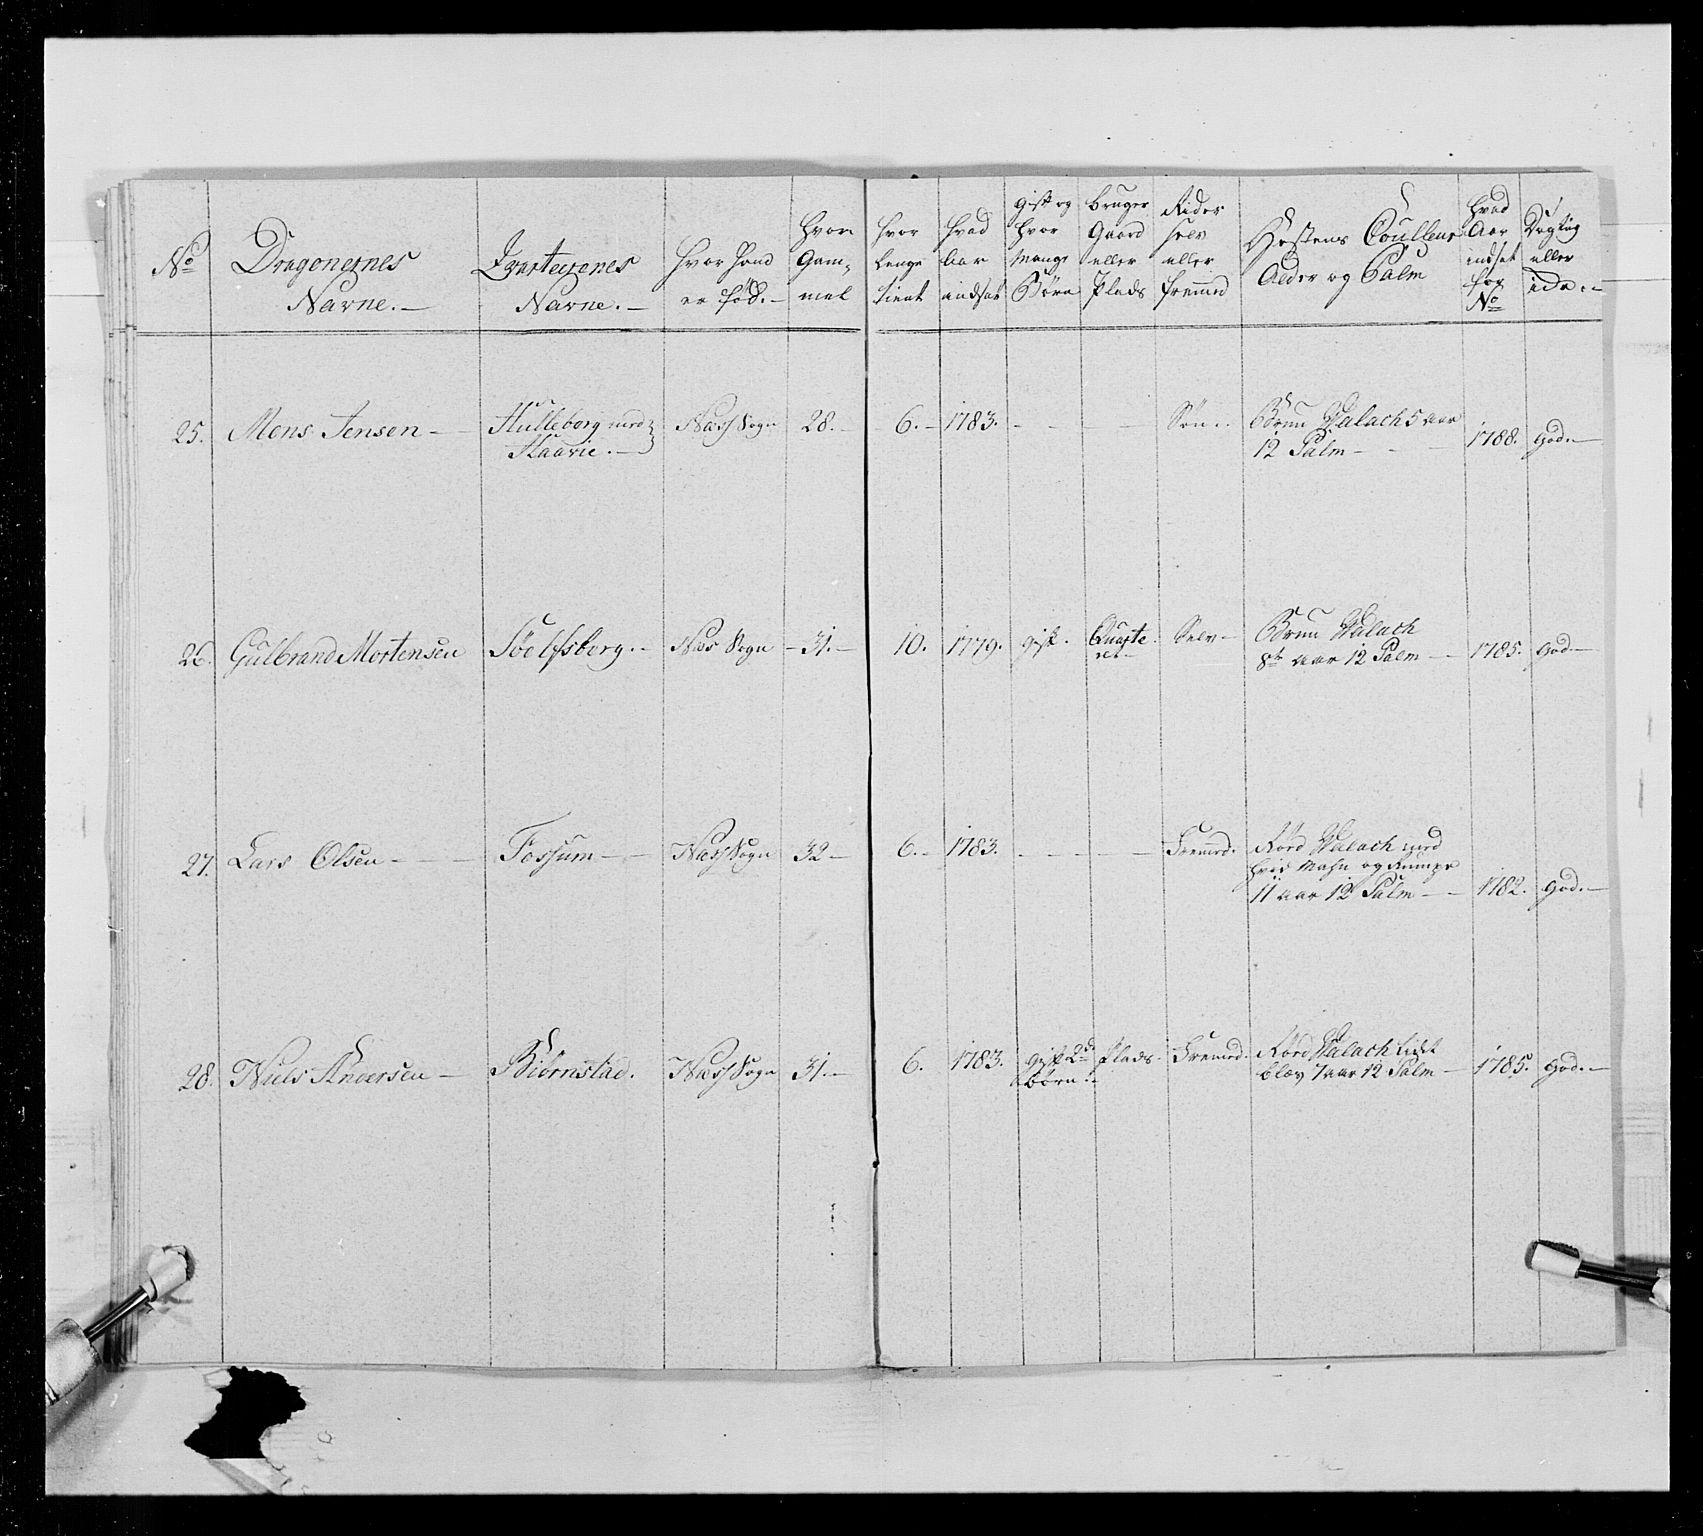 No
Dragonernes
Navne.
Qvarterenes
Navne.
Hvor Hand
er fød.
Hvor
Gam
mel
Hvor
lenge
tient
Hvad
Aar
indsat
gift og
hvor
mange
Børn
bruger
Gaard
eller
Plads
Rider
selv
eller
fremed
Hæstens Couleur
Alder og Palm
Hvad
Aar
indsat
for
No
Dygtig
eller
icke.
25. Mons Jensen Hulleborg med Næs Sogn 28. 6. 1783. Søn. Brun Valach 5 aar
Kaarie. 12 Palm 1788. god.
26. Gulbrand Mortensen Næs Sogn 31. 10. 1779. gift. Qvarte Selv Brun Valach
ret 8te aar 12 Palm 1785. god.
27. Lars Olsen Fossum Næs Sogn 32 6. 1783. Fremed. Rød Valach med
hvid Mahn og Rumpe
11 aar 12 Palm 1782. god.
28. Niels Andersen Biørnstad. Næs Sogn 31. 6. 1783. gift 2de Plads. Fremed. Rød Valach lidet
børn. blæs 7 aar 12 Palm 1785. god.